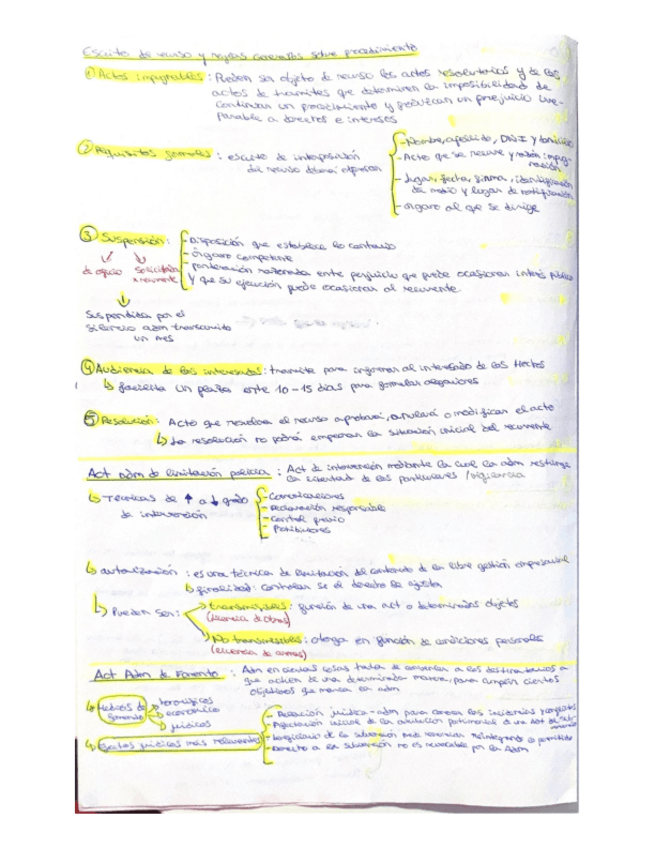 Escrito de recurso y reglas generales sobre procedimiento
① Actos impugnables: Pueden ser objeto de recurso los actos resolutorios y de los
actos de tramites que determinen la imposibilidad de
continuar un procedimiento y produzcan un prejuicio irre-
parable a derechos e intereses
② Requisitos generales: escrito de interposición
del recurso deberá expresar
- Nombre, apellido, DNI y domicilio
- Acto que se recurre y razón impug-
nación
- Lugar, fecha, firma, identificación
del medio y lugar de notificación
- órgano al que se dirige
③ Suspensión:
de oficio
solicitada
x recurrente
- Disposición que establece lo contrario
- órgano competente
- ponderación razonada entre perjuicio que puede ocasionar interés público
y que su ejecución puede ocasionar al recurrente.
Suspendida por el
silencio adm transcurrido
un mes
④ Audiencia de los interesados: tramite para informar al interesado de los Hechos
↳ facilita un plazo entre 10-15 dias para formular alegaciones
⑤ Resolución: Acto que resuelva el recurso aprobará, anulará o modificar el acto
↳ La resolución no podrá empeorar la situación inicial del recurrente
Act adm de limitación policia: Act de intervención mediante la cual la adm restringe
la libertad de los particulares / vigilancia
↳ Técnicas de ↑ a ↓ grado
de intervención
- Comunicaciones
- Declaración responsable
- Control previo
- Prohibitivas
↳ autorización: es una técnica de limitación del contenido de la libre gestión empresarial
↳ finalidad: controlar se el derecho se ajusta
↳ Pueden ser:
transmisibles: función de una act o determinados objetos
(licencia de obras)
No transmisibles: otorga en función de condiciones personales
(licencia de armas)
Act Adm de Fomento: Adm en ciertas cosas trata de convencer a los destinatarios a
que actúen de una determinada manera, para cumplir ciertos
objetivos que marca la adm
↳ Medios de
fomento
honoríficos
económico
jurídicos
↳ Gastos jurídicos más relevantes
- Relación jurídica-adm para conocer los
- Afectación inicial de la atribución patrimonial a una act de sub-
vención
- beneficiario de la subvención
- Derecho a la subvención no es revocable por la Adm